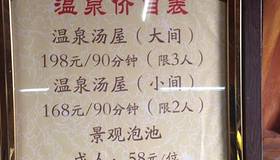 温泉价目表
温泉汤屋（大间）
198元/90分钟（限3人）
温泉汤屋（小间）
168元/90分钟（限2人）
景观泡池
成人：58元/位